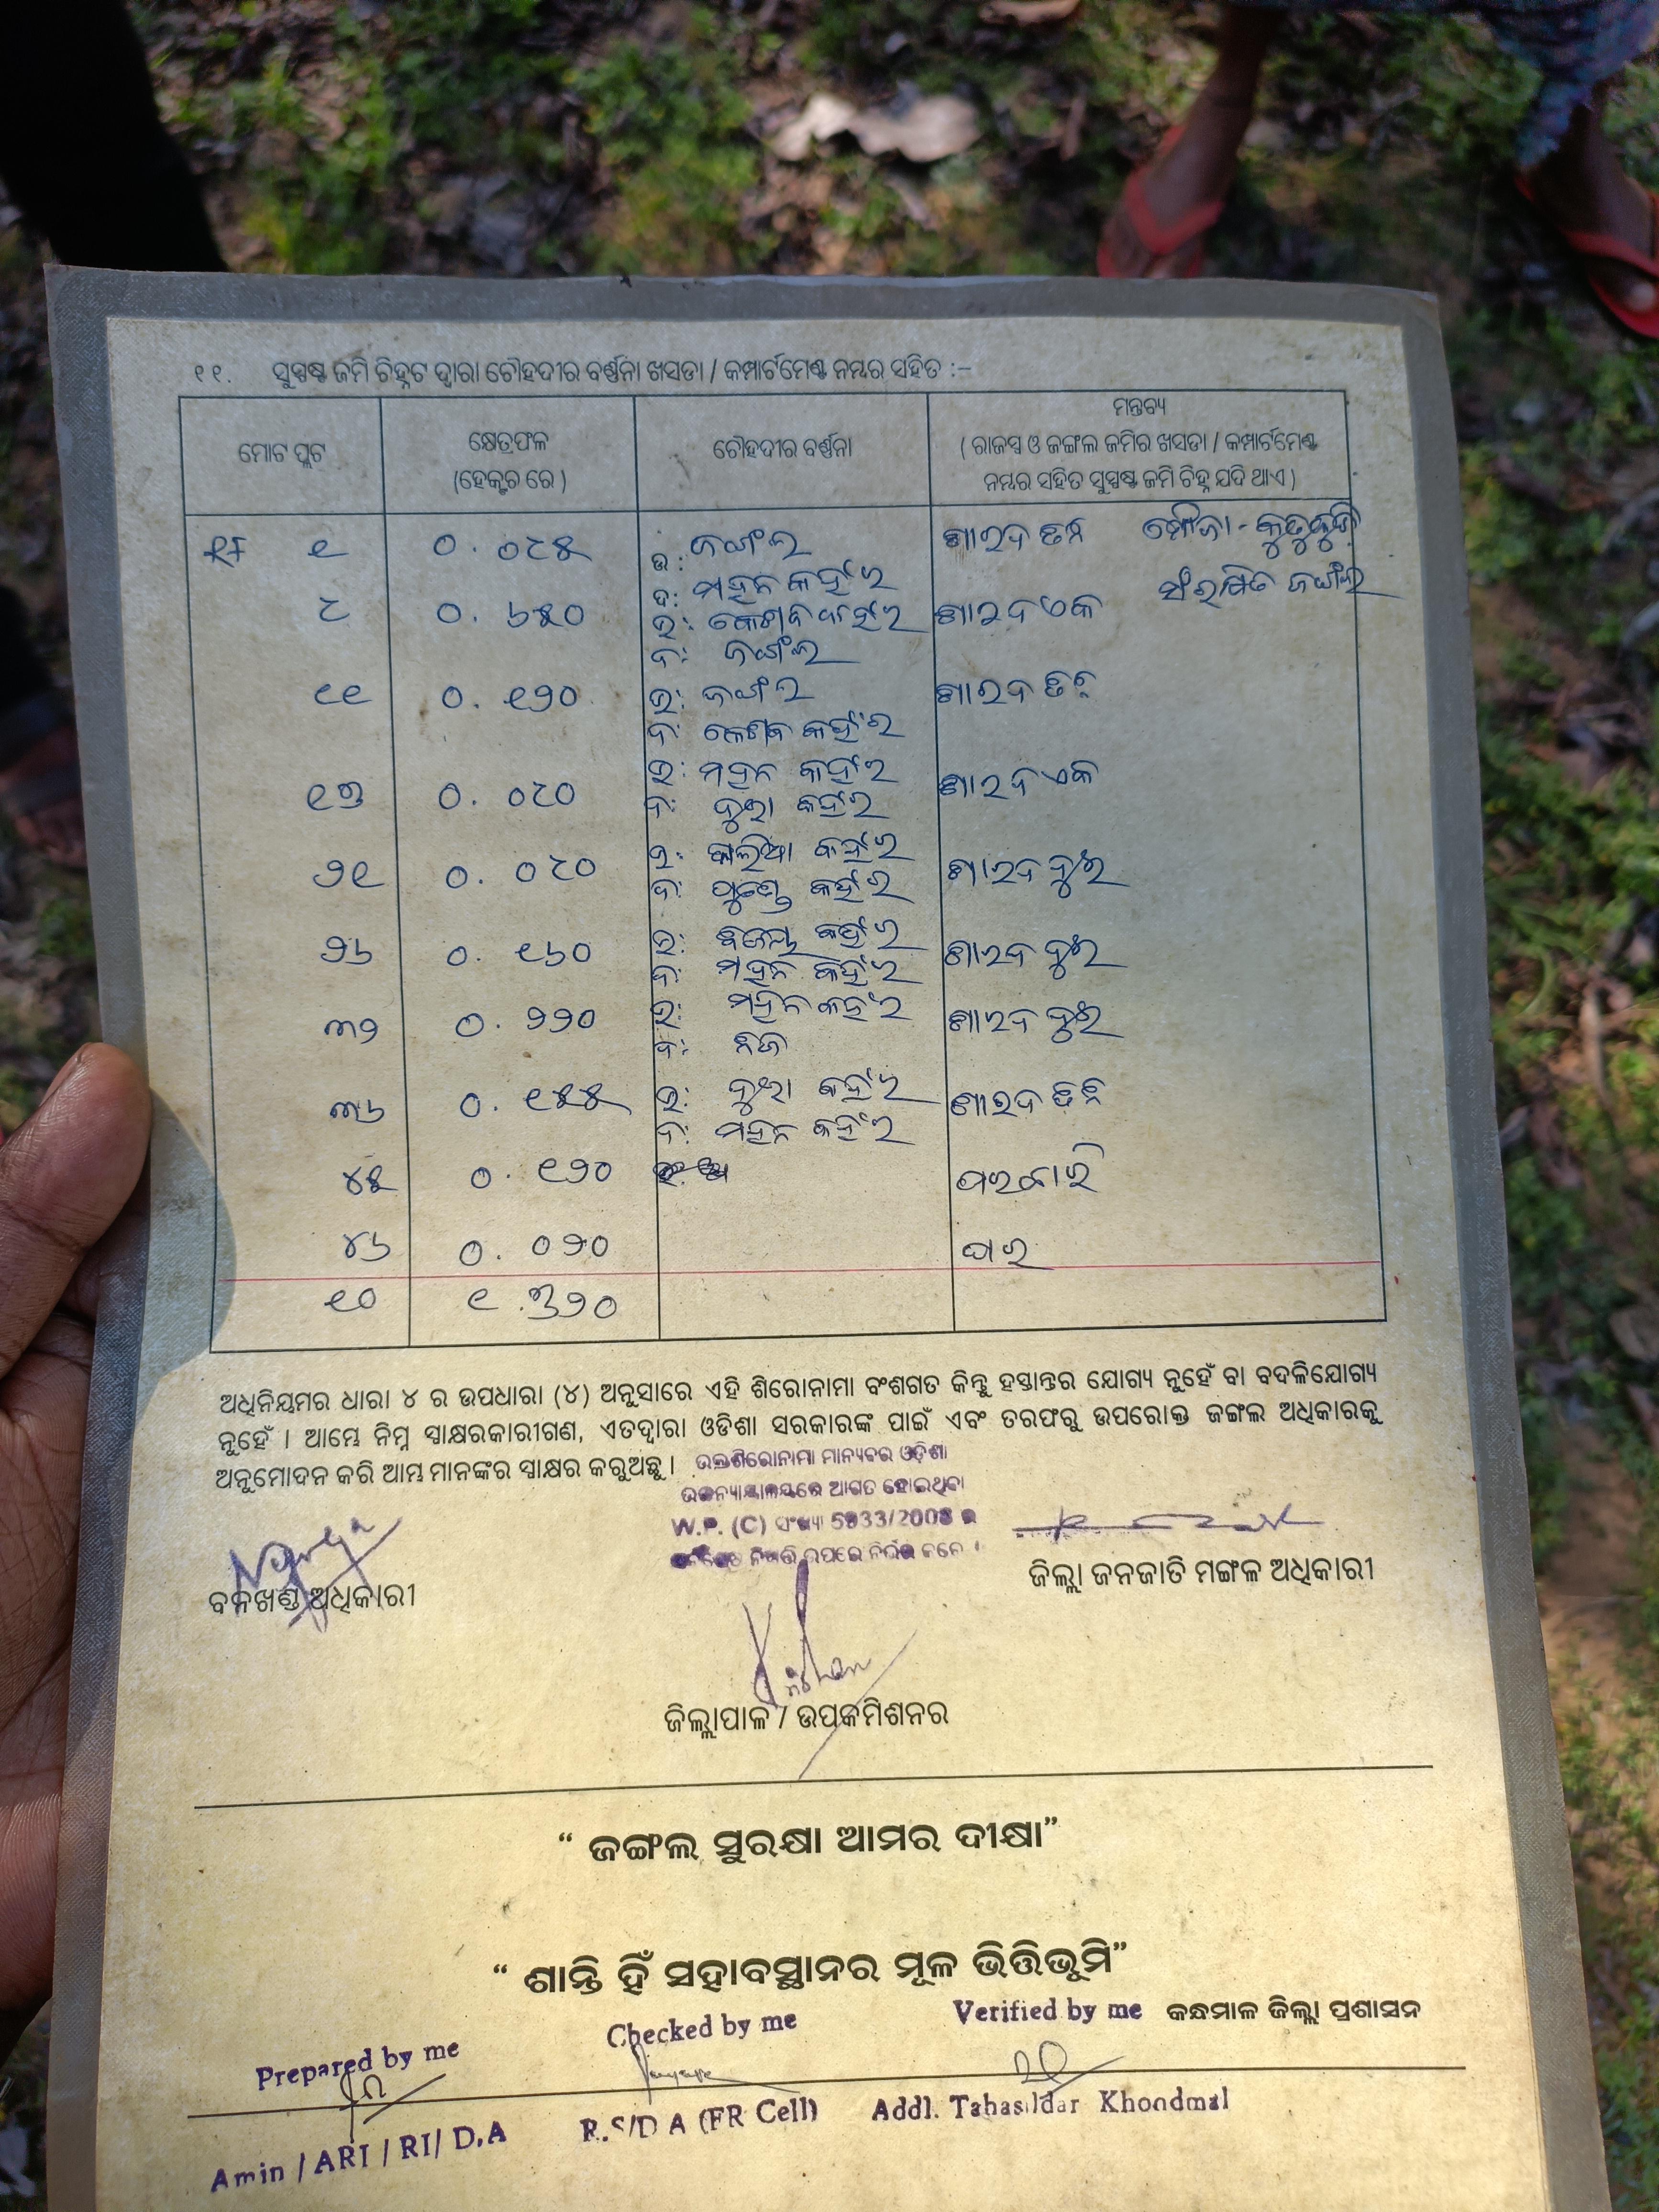 ୧୧. ସୁସ୍ପଷ୍ଟ ଜମି ଚିହ୍ନଟ ଦ୍ଵାରା ଚୌହଦୀର ବର୍ଣ୍ଣନା ଖସଡା / କମ୍ପାର୍ଟମେଣ୍ଟ ନମ୍ବର ସହିତ :–
ମୋଟ ପ୍ଲଟ
କ୍ଷେତ୍ରଫଳ
(ହେକ୍ଟର ରେ)
ଚୌହଦୀର ବର୍ଣ୍ଣନା
ମନ୍ତବ୍ୟ
( ରାଜସ୍ଵ ଓ ଜଙ୍ଗଲ ଜମିର ଖସଡା / କମ୍ପାର୍ଟମେଣ୍ଟ
ନମ୍ବର ସହିତ ସୁସ୍ପଷ୍ଟ ଜମି ଚିହ୍ନ ଯଦି ଥାଏ )
RF ୧ ୦.୦୮୫ ଉ: ଜଙ୍ଗଲ ଶାରଦ ତିନ ମୌଜା -
ଦ: ମହନ କହଁର ସଂରକ୍ଷିତ ଜଙ୍ଗଲ
୮ ୦.୬୫୦ ଉ: କେଶବ କହଁର ଶାରଦ ଏକ
ଦ: ଜଙ୍ଗଲ
୧୧ ୦.୧୨୦ ଉ: ଜଙ୍ଗଲ ଶାରଦ ତିନ୍
ଦ: କେଶବ କହଁର
୧୭ ୦.୦୮୦ ଉ: ମହନ କହଁର ଶାରଦ ଏକ
ଦ: କହଁର
୨୧ ୦.୦୮୦ ଉ: କାଲିଆ କହଁର ଶାରଦ ଦୁଇ
ଦ: କହଁର
୨୬ ୦.୧୬୦ ଉ: କହଁର ଶାରଦ ଦୁଇ
ଦ: ମହନ କହଁର
୩୨ ୦.୨୨୦ ଉ: ମହନ କହଁର ଶାରଦ ଦୁଇ
ଦ: ନିଜ
୩୬ ୦.୧୫୫ ଉ: କହଁର ଶାରଦ ତିନି
ଦ: ମହନ କହଁର
୪୫ ୦.୧୨୦ ଘରବାରି
୪୬ ୦.୦୨୦ ଘର
୧୦ ୧.୭୨୦
ଅଧିନିୟମର ଧାରା ୪ ର ଉପଧାରା (୪) ଅନୁସାରେ ଏହି ଶିରୋନାମା ବଂଶଗତ କିନ୍ତୁ ହସ୍ତାନ୍ତର ଯୋଗ୍ୟ ନୁହେଁ ବା ବଦଳିଯୋଗ୍ୟ
ନୁହେଁ । ଆମ୍ଭେ ନିମ୍ନ ସ୍ଵାକ୍ଷରକାରୀଗଣ, ଏତଦ୍ଵାରା ଓଡିଶା ସରକାରଙ୍କ ପାଇଁ ଏବଂ ତରଫରୁ ଉପରୋକ୍ତ ଜଙ୍ଗଲ ଅଧିକାରକୁ
ଅନୁମୋଦନ କରି ଆମ୍ଭ ମାନଙ୍କର ସ୍ଵାକ୍ଷର କରୁଅଛୁ ।
ଉକ୍ତଶିରୋନାମା ମାନ୍ୟବର ଓଡ଼ିଶା
ଉଚ୍ଚନ୍ୟାୟାଳୟରେ ଆଗତ ହୋଇଥିବା
W.P. (C) ସଂଖ୍ୟା 5933/2008 ର
ଉପରେ ନିର୍ଭର କରେ ।
ବନଖଣ୍ଡ ଅଧିକାରୀ
ଜିଲ୍ଲା ଜନଜାତି ମଙ୍ଗଳ ଅଧିକାରୀ
ଜିଲ୍ଲାପାଳ / ଉପକମିଶନର
“ ଜଙ୍ଗଲ ସୁରକ୍ଷା ଆମର ଦୀକ୍ଷା”
“ ଶାନ୍ତି ହିଁ ସହାବସ୍ଥାନର ମୂଳ ଭିତ୍ତିଭୂମି”
Prepared by me
Checked by me
Verified by me କନ୍ଧମାଳ ଜିଲ୍ଲା ପ୍ରଶାସନ
Amin / ARI / RI/ D.A
R.S/D A (FR Cell)
Addl. Tahasildar Khondmal